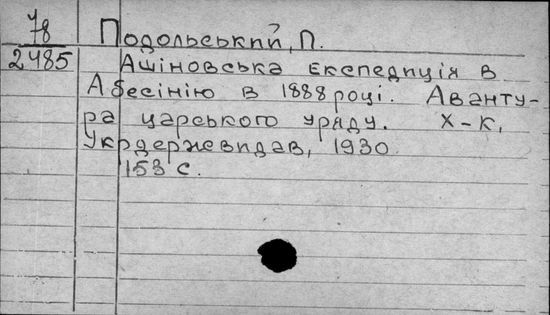 78
2485
Подольський, П.
Ашіновська експедиція в
Абесінію в 1888 році. Аванту-
ра царського уряду. Х-к,
Укрдержвидав, 1930.
153 с.